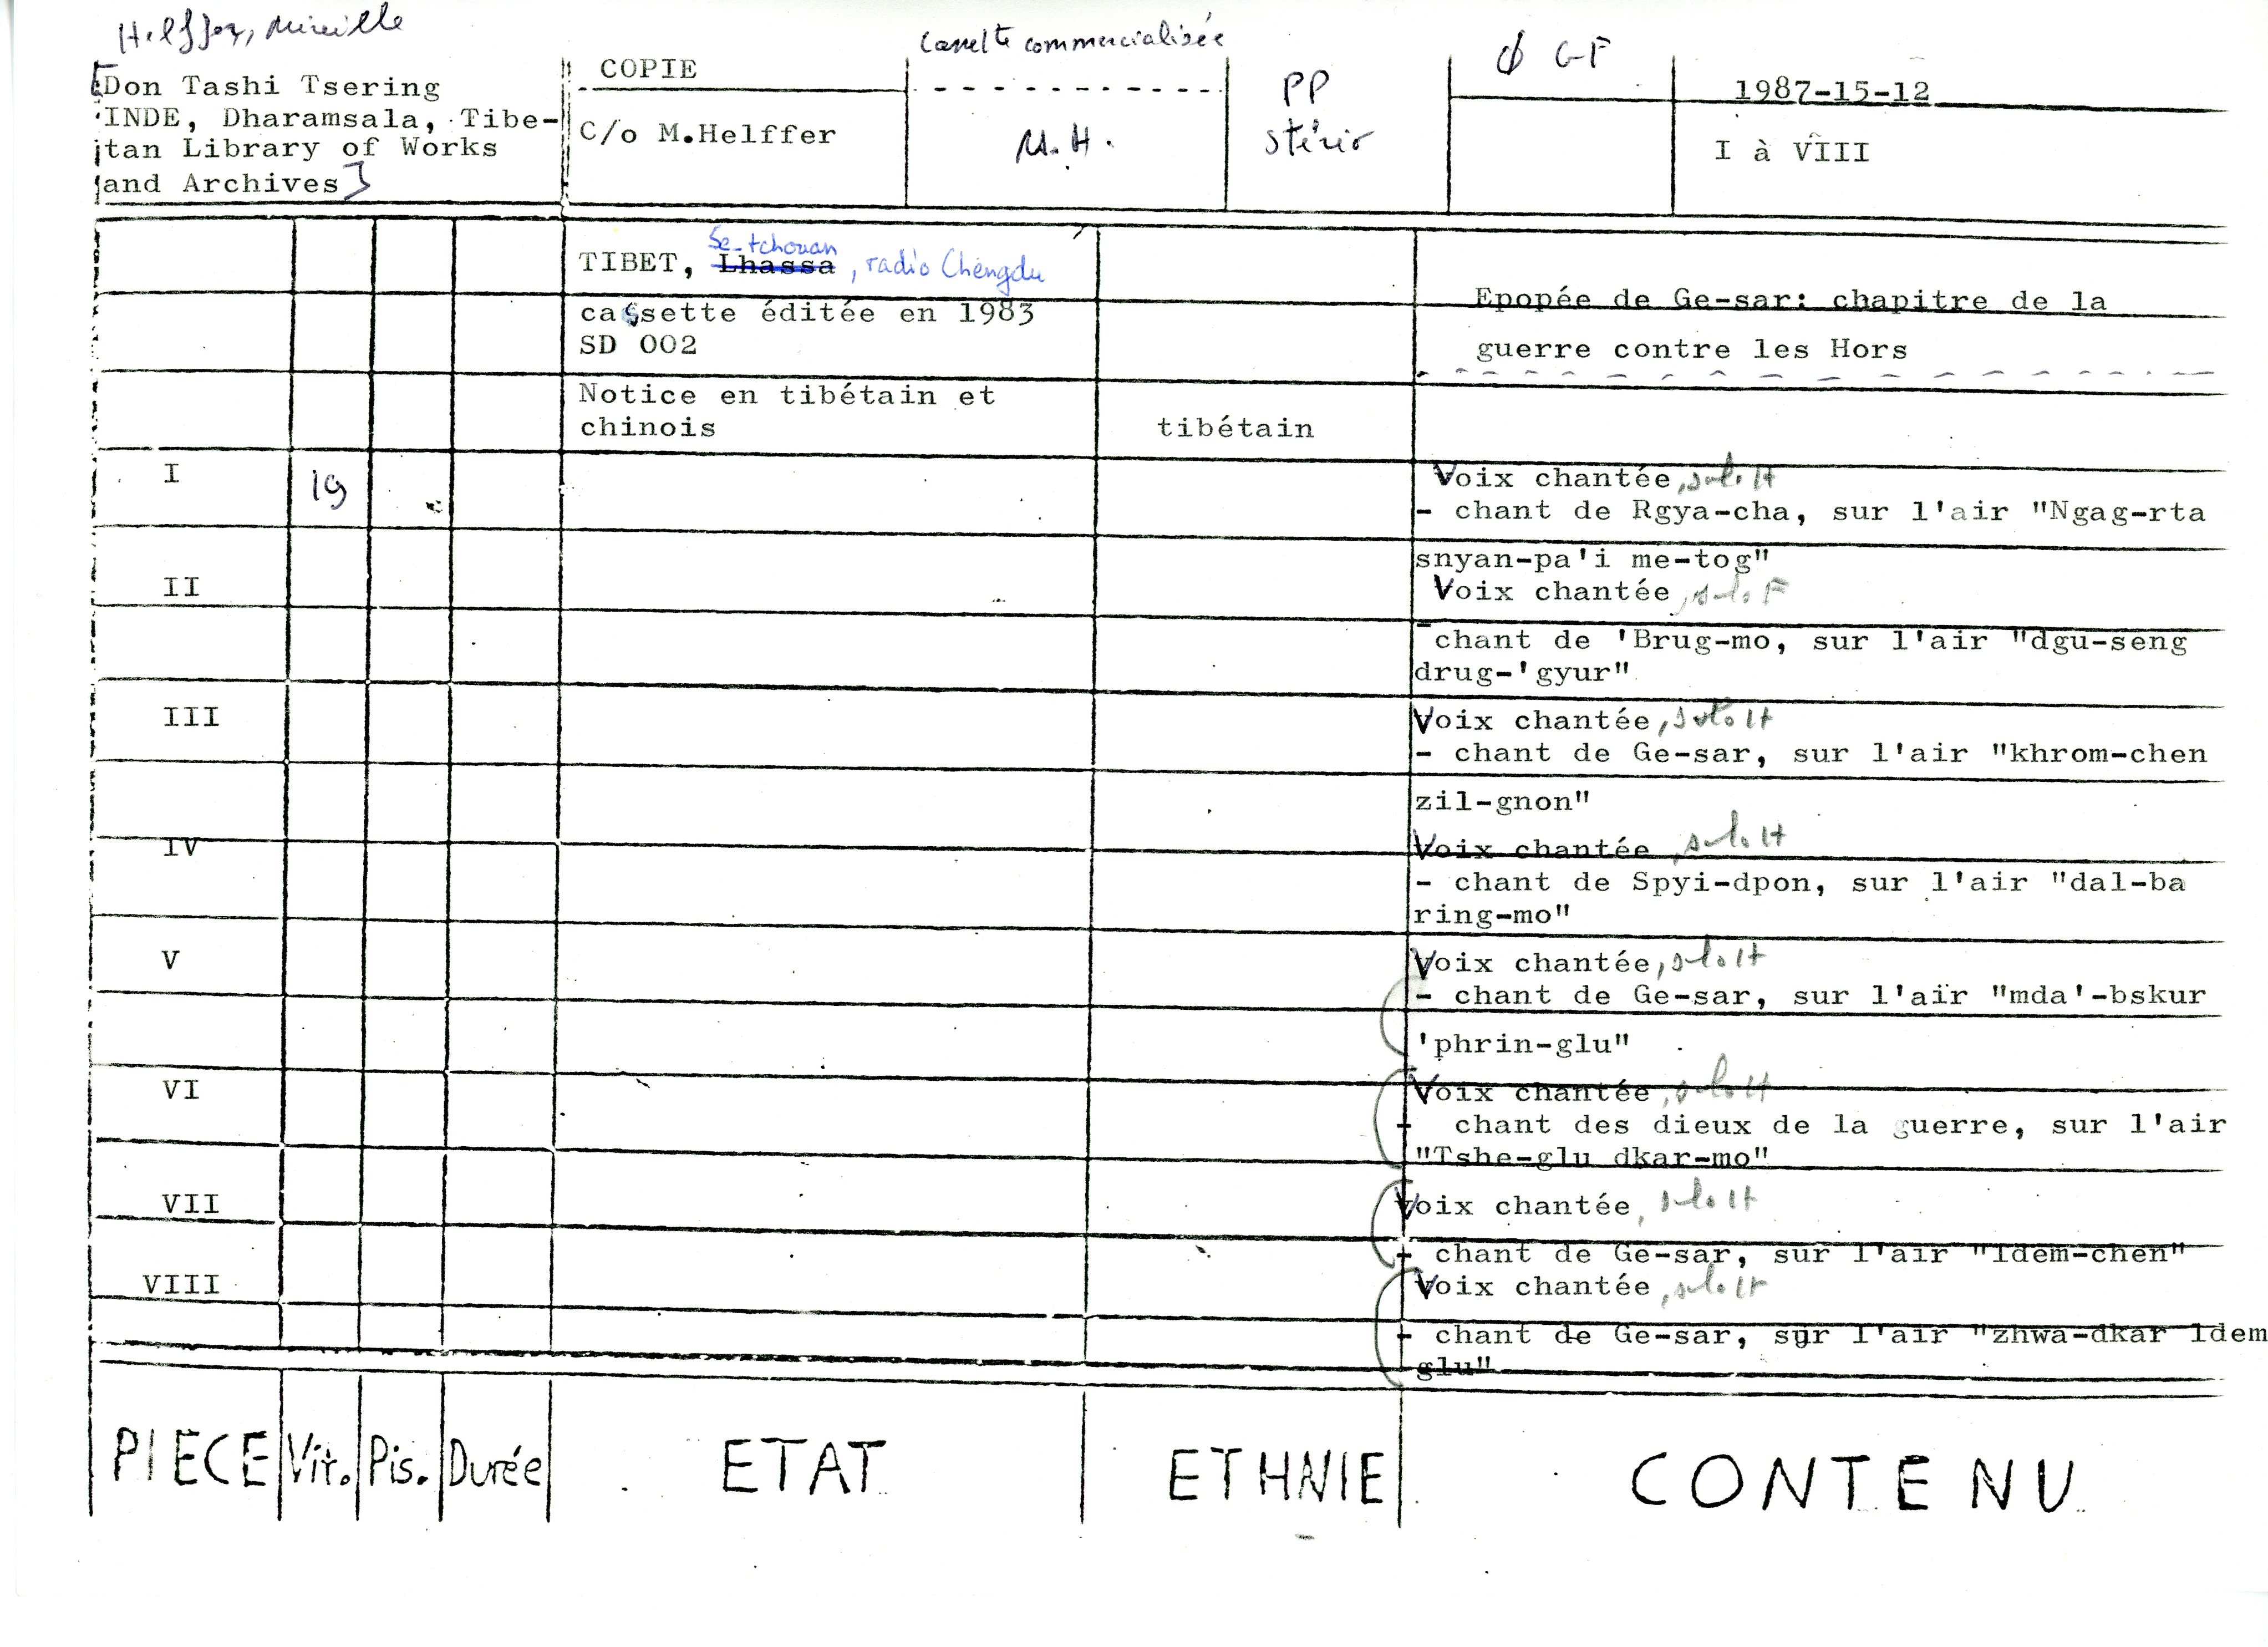 Helffer, Mireille
[Don Tashi Tsering
INDE, Dharamsala, Tibe-
tan Library of Works
and Archives]
COPIE
C/o M.Helffer
commercialisée
M.H.
PP
stéréo
Ø G-F
1987-15-12
I à VIII
TIBET, Lhassa Se-tchouan, radio Chengdu
cassette éditée en 1983
SD 002
Epopée de Ge-sar: chapitre de la
guerre contre les Hors
Notice en tibétain et
chinois
tibétain
I
19
Voix chantée, solo H
- chant de Rgya-cha, sur l'air "Ngag-rta
snyan-pa'i me-tog"
II
Voix chantée, solo F
- chant de 'Brug-mo, sur l'air "dgu-seng
drug-'gyur"
III
Voix chantée, solo H
- chant de Ge-sar, sur l'air "khrom-chen
zil-gnon"
IV
Voix chantée, solo H
- chant de Spyi-dpon, sur l'air "dal-ba
ring-mo"
V
Voix chantée, solo H
- chant de Ge-sar, sur l'air "mda'-bskur
'phrin-glu"
VI
Voix chantée, solo H
- chant des dieux de la guerre, sur l'air
"Tshe-glu dkar-mo"
VII
Voix chantée, solo H
- chant de Ge-sar, sur l'air "ldem-chen"
VIII
Voix chantée, solo H
- chant de Ge-sar, sur l'air "zhwa-dkar ldem
glu"
PIECE Vit. Pis. Durée ETAT ETHNIE CONTENU